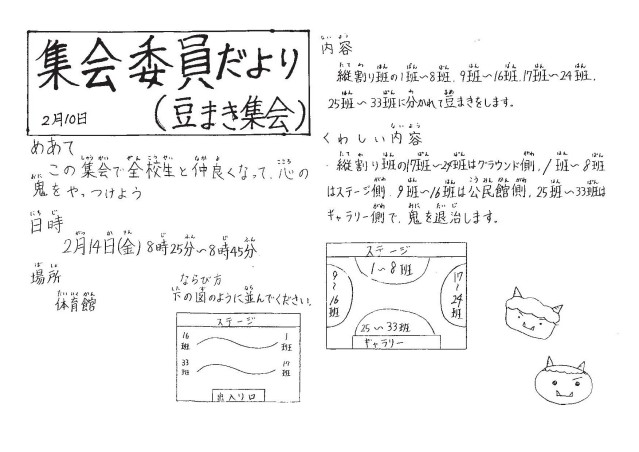 集会委員だより
2月10日
(豆まき集会)
めあて
この集会で全校生と仲良くなって、心の
鬼をやっつけよう
日時
2月14日(金)8時25分〜8時45分
場所
体育館
ならび方
下の図のように並んでください。
ステージ
16班
1班
33班
17班
出入り口
内容
・縦割り班の1班〜8班、9班〜16班、17班〜24班、
25班〜33班に分かれて豆まきをします。
くわしい内容
・縦割り班の17班〜24班はグラウンド側、1班〜8班
はステージ側、9班〜16班は公民館側、25班〜33班は
ギャラリー側で、鬼を退治します。
ステージ
1〜8班
9〜16班
17〜24班
25〜33班
ギャラリー